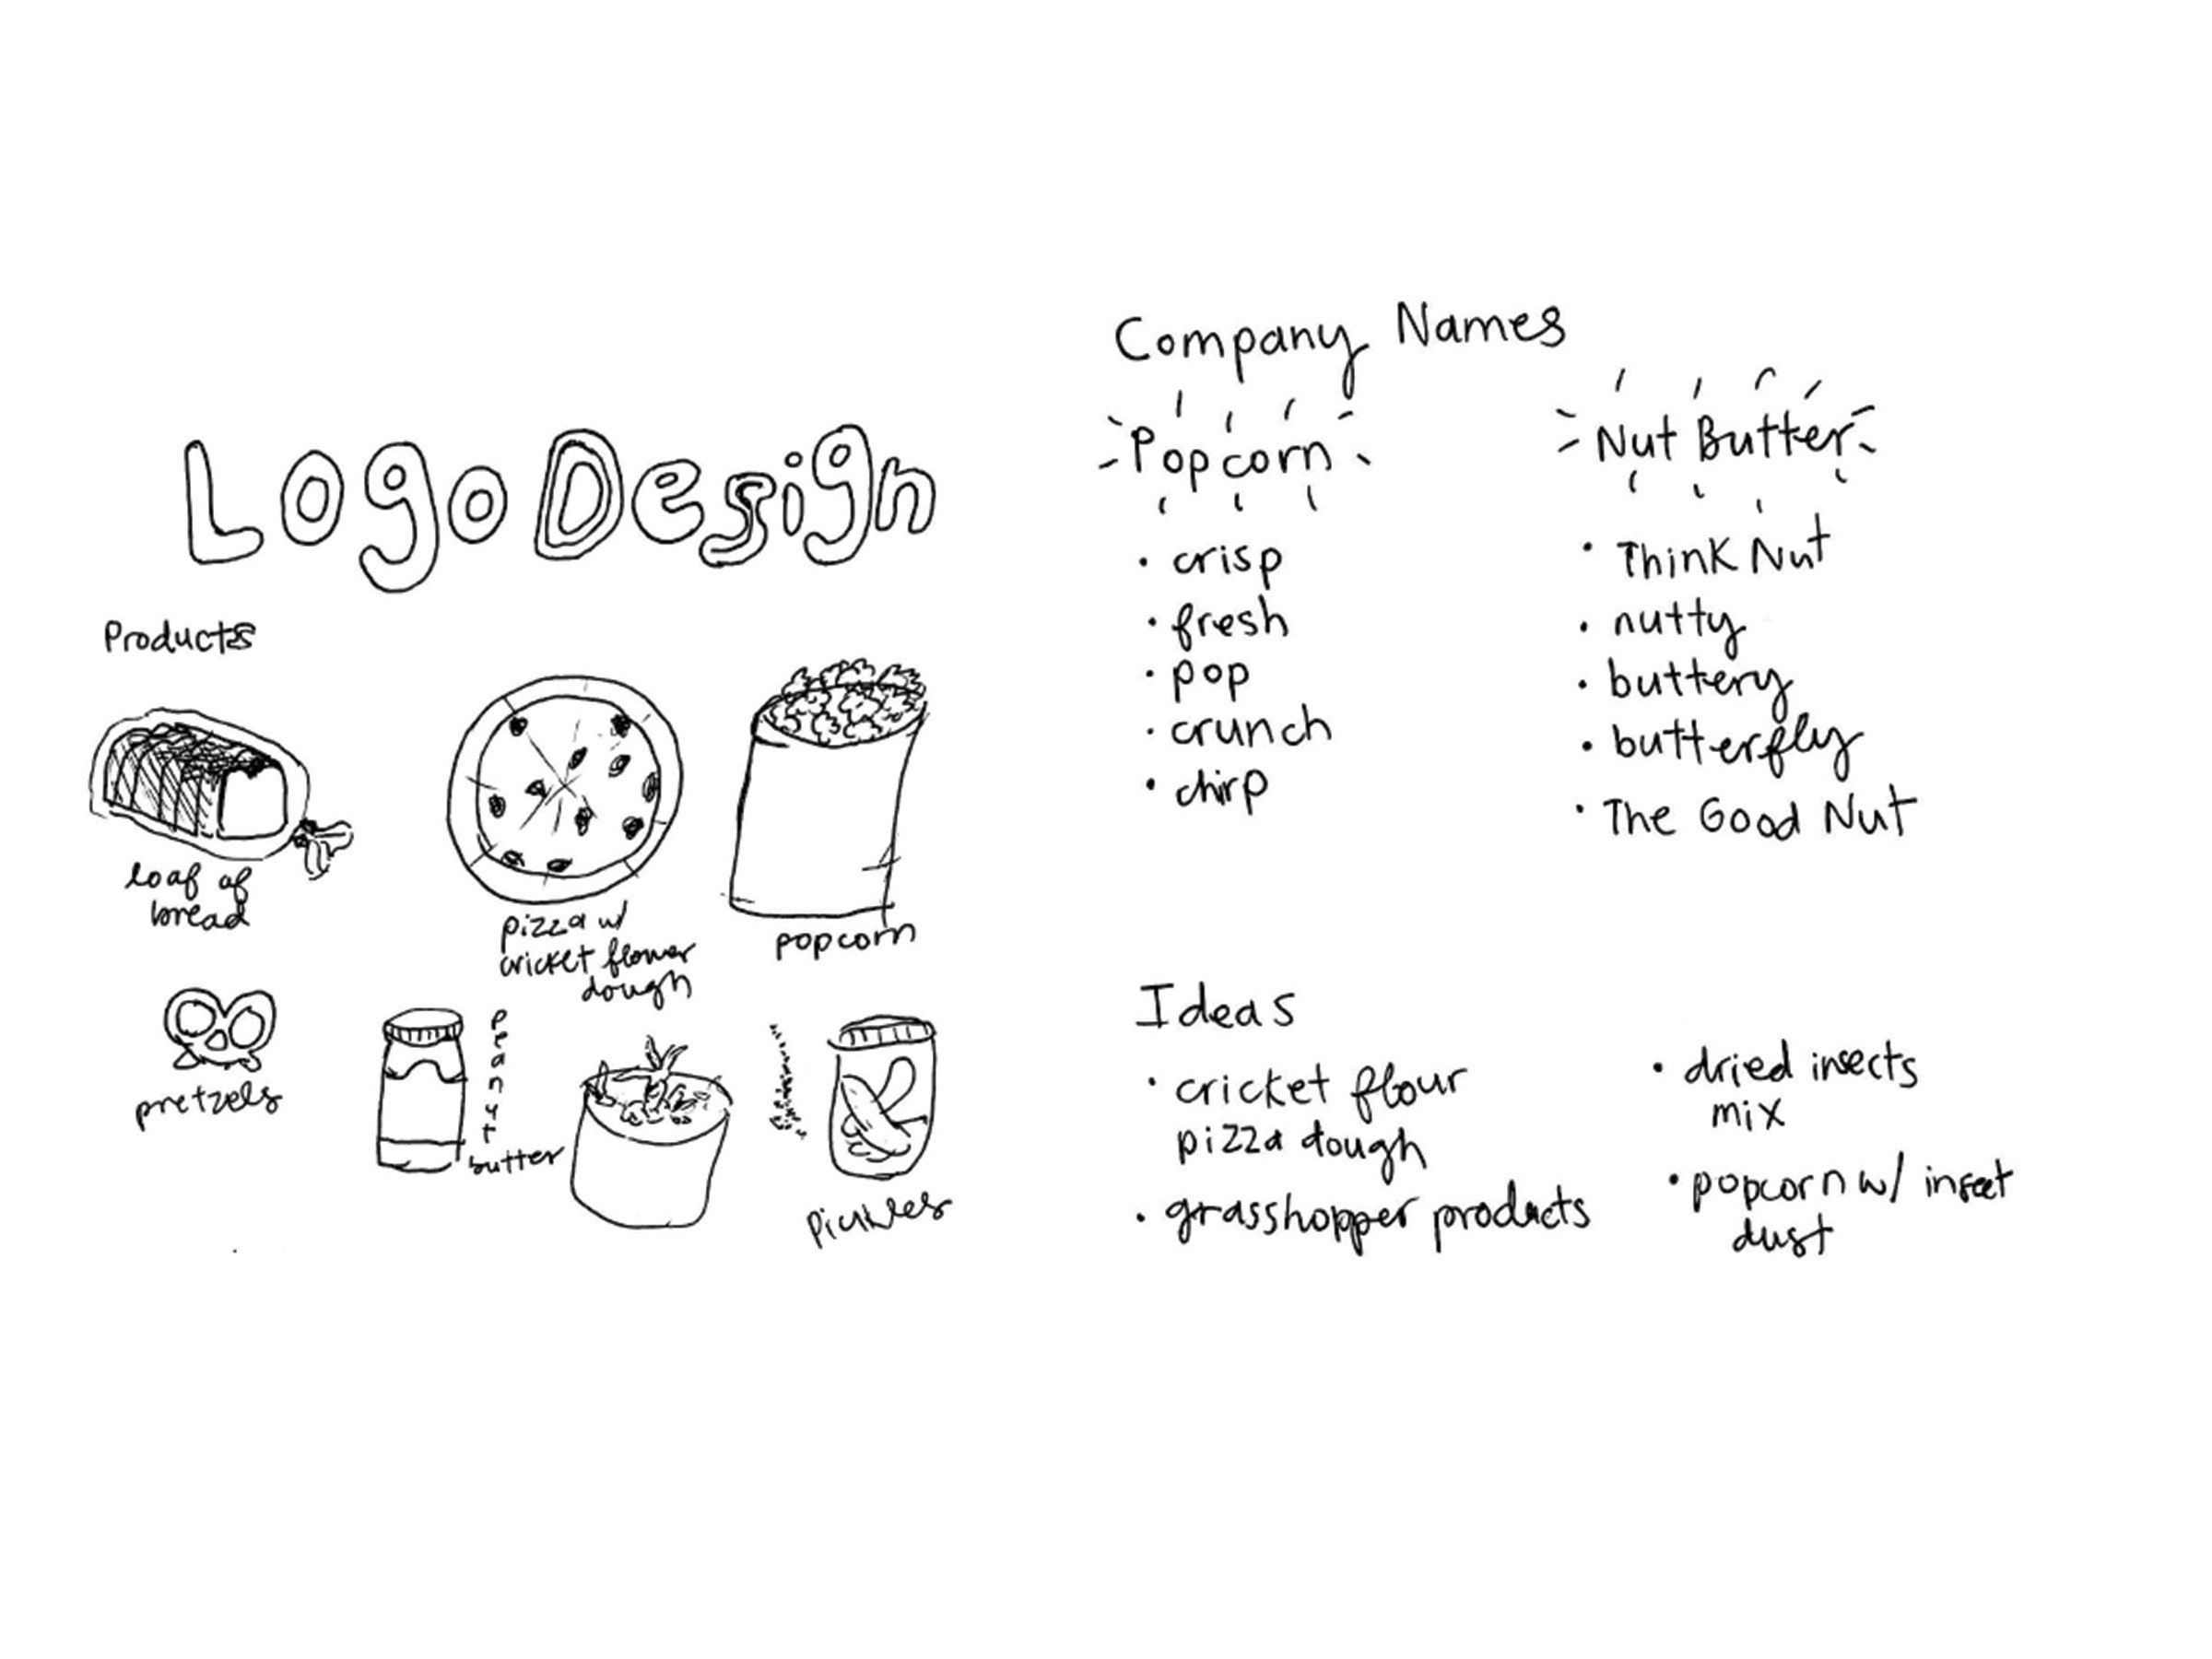 Logo Design
Products
loaf of
bread
pizza w/
cricket flower
dough
popcorn
pretzels
peanut
butter
pickles
Company Names
Popcorn
• crisp
• fresh
• pop
• crunch
• chirp
Nut Butter
• Think Nut
• nutty
• buttery
• butterfly
• The Good Nut
Ideas
• cricket flour
pizza dough
• grasshopper products
• dried insects
mix
• popcorn w/ insect
dust